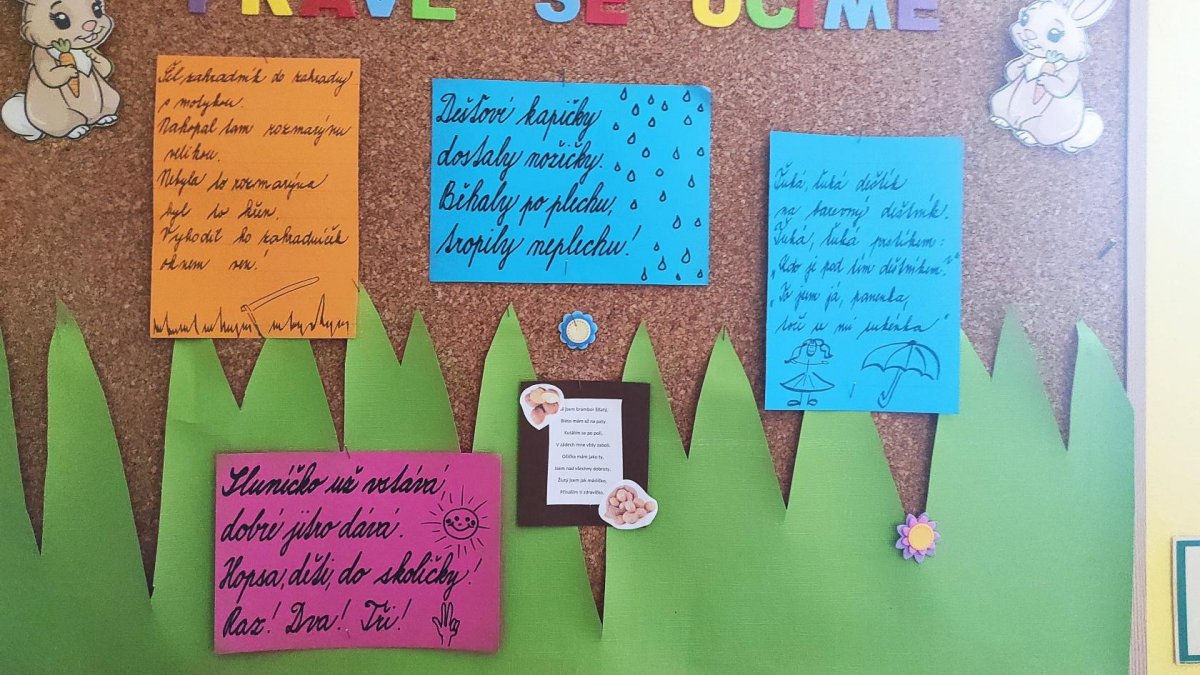 PRÁVĚ SE UČÍME
Šel zahradník do zahrady
s motykou.
Nakopal tam rozmarýnu
velikou.
Nebyla to rozmarýna
byl to křen.
Vyhodil ho zahradníček
oknem ven!
Dešťové kapičky
dostaly nožičky.
Běhaly po plechu,
tropily neplechu!
Ťuká, ťuká deštík
na barevný deštník.
Ťuká, ťuká prstíkem:
"Kdo je pod tím deštníkem?"
"To jsem já, panenka,
točí se mi sukénka"
Já jsem brambor žlutý,
Bláto mám až na paty
Kutálím se po poli,
V zádech mne vždy zabolí.
Očička mám jako ty,
Jsem nad všechny dobroty.
Žlutý jsem jak másličko,
Přináším ti zdravíčko.
Sluníčko už vstává
dobré jitro dává.
Hopsa, děti, do školičky!
Raz! Dva! Tři!